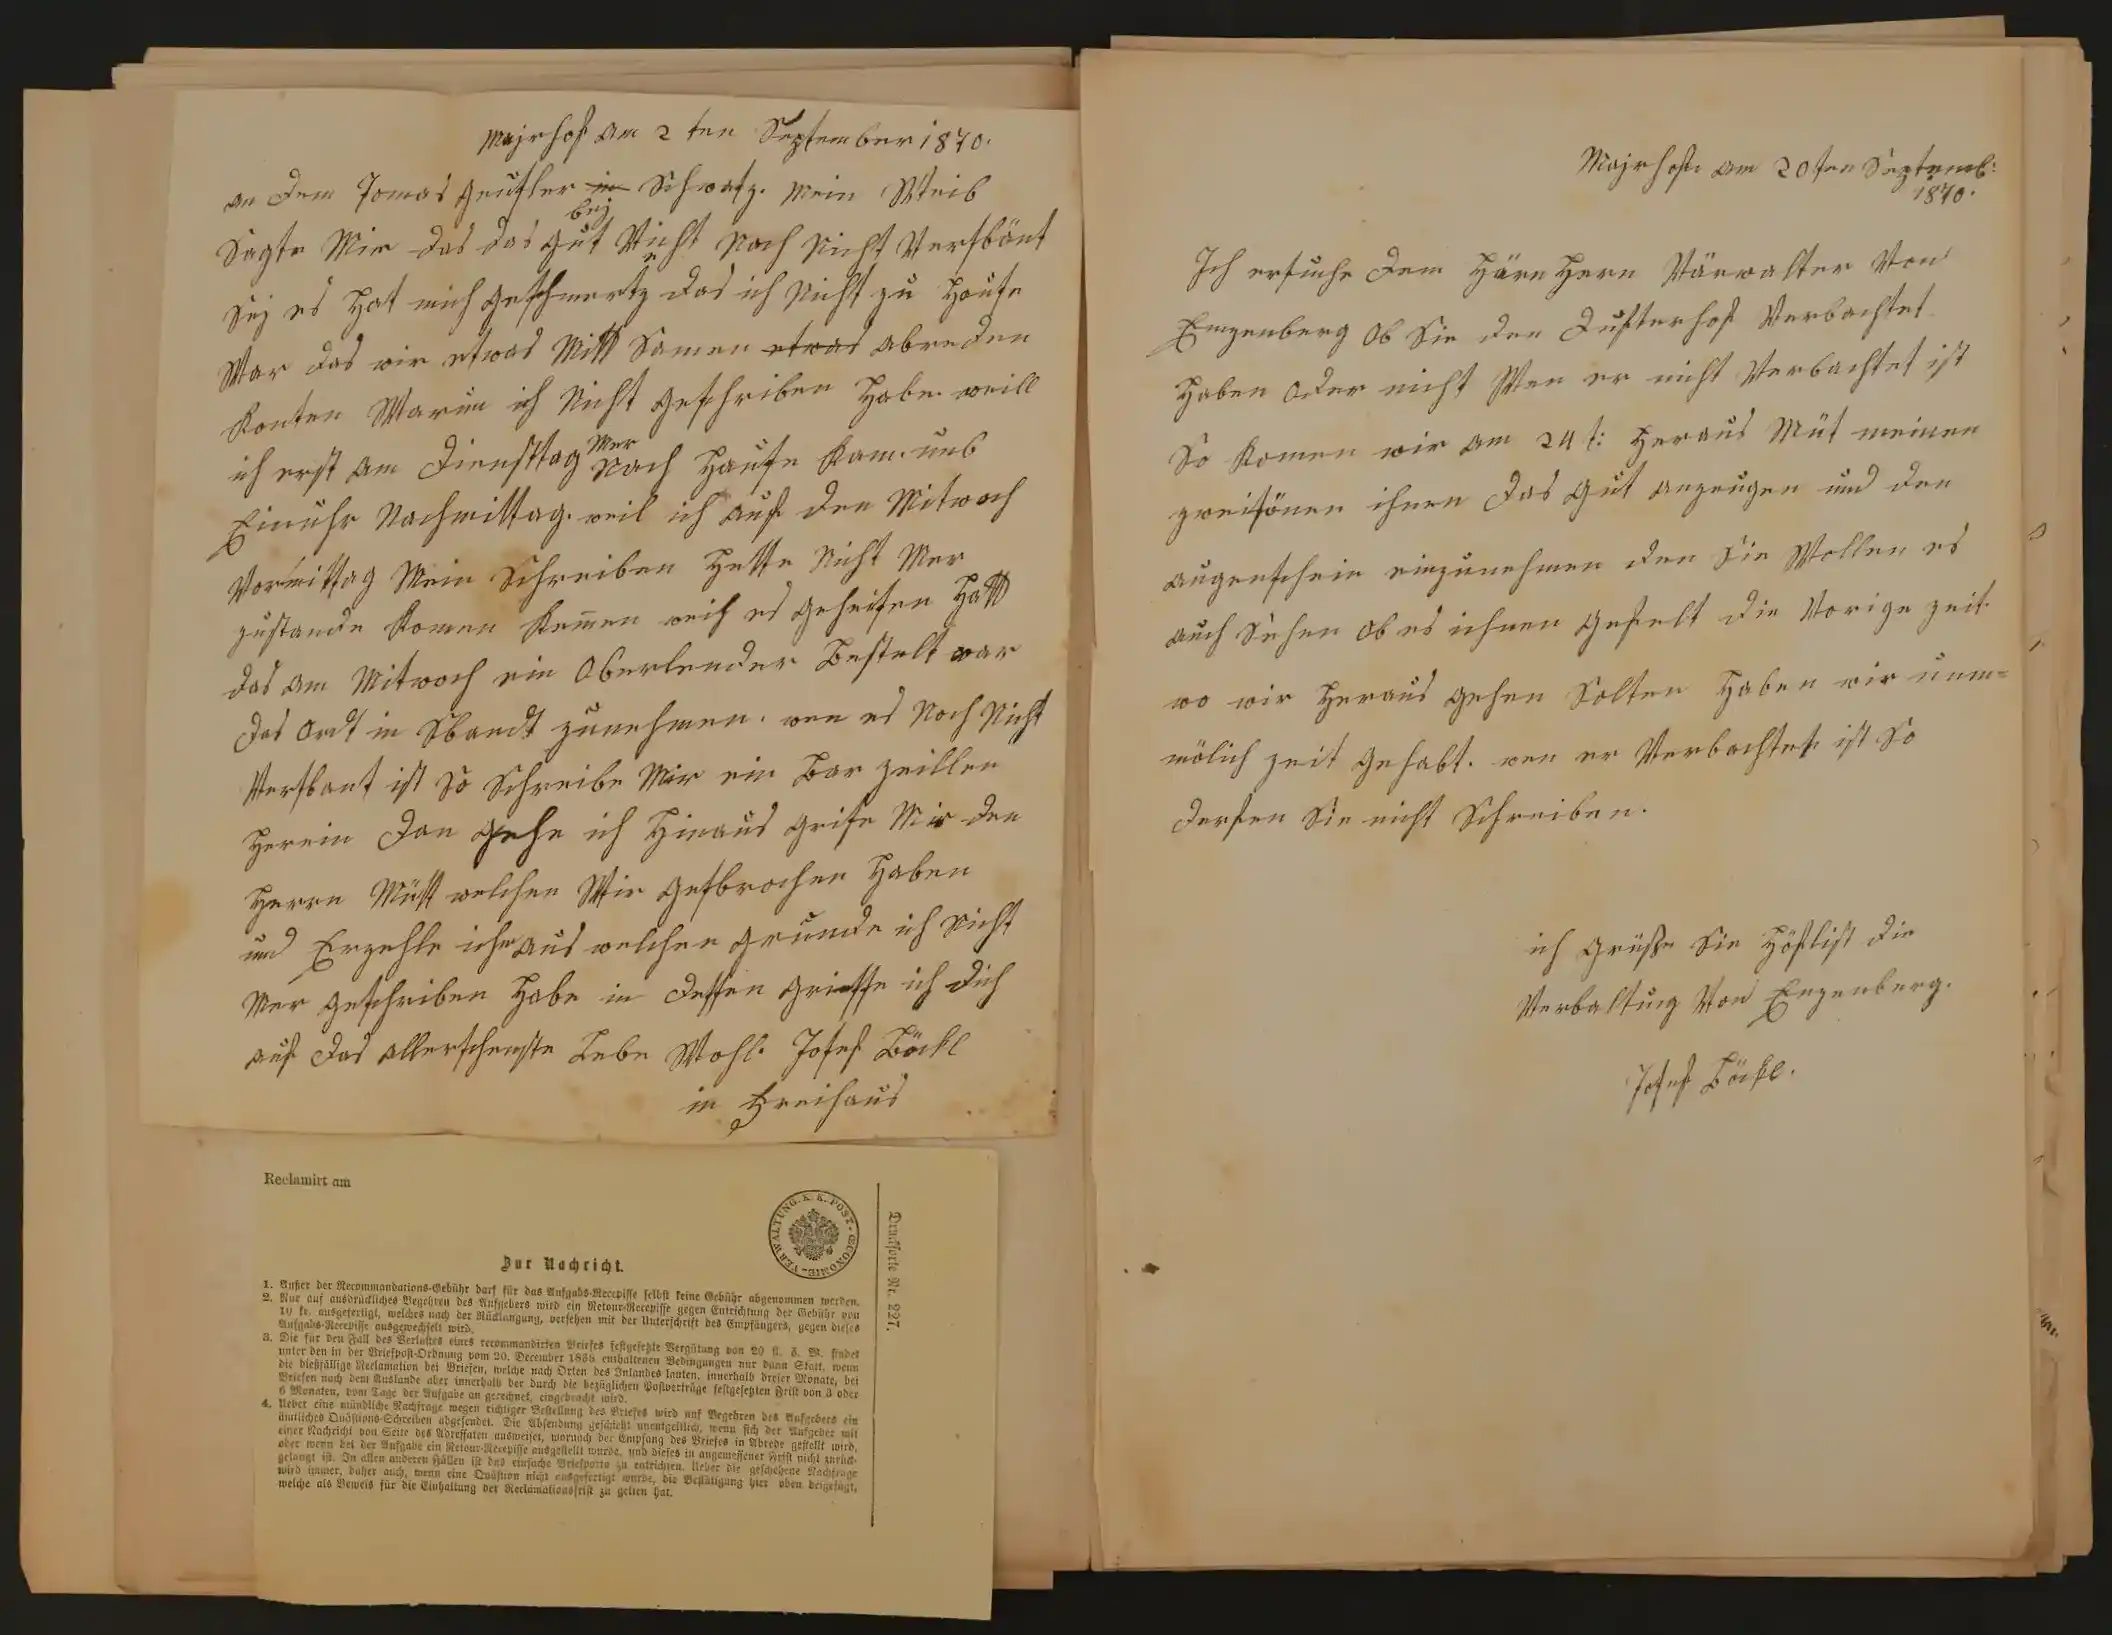 Majrhof am 2 ten September 1870.
an dem Jomas Geusler in Schwatz. Mein Weib
bej
Sagte Mir das das gut Nicht Noch Nicht Versbönt
Sej es Hat mich geschmertz das ich Nicht zu Hause
War das wir etwas Mitt Samen etwas abreden
Konten Warum ich Nicht geschriben Habe. weill
Mer
ich erst am Diensttag Nach Hause Kam. umb
Einuhr Nachmittag. weil ich auf den Mitwoch
Vormittag Mein Schreiben Hette Nicht Mer
zustande Komen Kemen weil es geheisen Hatt
das am Mitwoch ein Oberlender Bestelt war
das Ordt in Sbandt zunehmen. wen es Noch Nicht
Versbant ist So Schreibe Mir ein Bar zeillen
Herein Dan gehe ich Hinaus grise Mir den
Herrn Mütt welchen Wir gesbrochen Haben
und Erzehle ichm aus welchen grunde ich Nicht
Mer geschriben Habe in dessen griesse ich dich
auf das allerschenste Lebe Wohl. Josef Böckl
in Freihaus
Reclamirt am
VERWALTUNG. K. K. POST-ŒCONOMIE-
Drucksorte Nr. 227.
Zur Nachricht.
1. Außer der Recommandations-Gebühr darf für das Aufgabs-Recepisse selbst keine Gebühr abgenommen werden.
2. Nur auf ausdrückliches Begehren des Aufgebers wird ein Retour-Recepisse gegen Entrichtung der Gebühr von
10 kr. ausgefertigt, welches nach der Rücklangung, versehen mit der Unterschrift des Empfängers, gegen dieses
Aufgabs-Recepisse ausgewechselt wird.
3. Die für den Fall des Verlustes eines recommandirten Briefes festgesetzte Vergütung von 20 fl. ö. W. findet
unter den in der Briefpost-Ordnung vom 20. December 1838 enthaltenen Bedingungen nur dann Statt, wenn
die dießfällige Reclamation bei Briefen, welche nach Orten des Inlandes lauten, innerhalb dreier Monate, bei
Briefen nach dem Auslande aber innerhalb der durch die bezüglichen Postverträge festgesetzten Frist von 3 oder
6 Monaten, vom Tage der Aufgabe an gerechnet, eingebracht wird.
4. Ueber eine mündliche Nachfrage wegen richtiger Bestellung des Briefes wird auf Begehren des Aufgebers ein
ämtliches Quästions-Schreiben abgesendet. Die Absendung geschieht unentgeltlich, wenn sich der Aufgeber mit
einer Nachricht von Seite des Adressaten ausweiset, wornach der Empfang des Briefes in Abrede gestellt wird,
oder wenn bei der Aufgabe ein Retour-Recepisse ausgestellt wurde, und dieses in angemessener Frist nicht zurück-
gelangt ist. In allen anderen Fällen ist das einfache Briefporto zu entrichten. Ueber die geschehene Nachfrage
wird immer, daher auch, wenn eine Quästion nicht ausgefertigt wurde, die Bestätigung hier oben beigefügt,
welche als Beweis für die Einhaltung der Reclamationsfrist zu gelten hat.
Majrhofe am 20ten Septemb:
1870.
Ich ersuche dem Härn Hern Värwalter Von
Enzenberg Ob Sie den Dusterhof Verbachtet
Haben Oder nicht Wen er nicht Verbachtet ist
So Komen wir am 24 t: Heraus Müt meinen
zweisönen ihnen das Gut anzeugen und den
augenschein einzunehmen den Sie Wollen es
auch Sehen Ob es ichnen gefelt die Vorige zeit
wo wir Heraus gehen Solten Haben wir unm=
mölich zeit gehabt. wen er Verbachtet ist So
derfen Sie nicht Schreiben.
ich grüße Sie Höflist die
Verbaltung Von Enzenberg.
Josef Böckl.